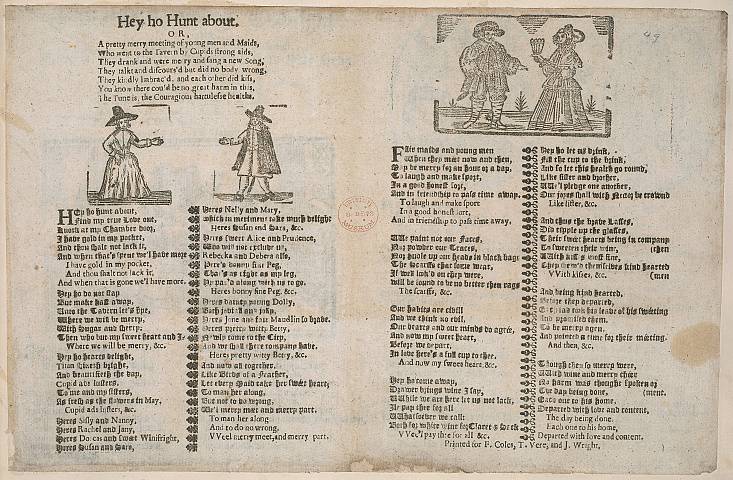 Hey ho Hunt about.
OR,
A pretty merry meeting of young men and Maids,
Who went to the Tavern by Cupids strong aids,
They drank and were merry and sang a new Song,
They talkt and discours'd but did no body wrong,
They kindly imbrac'd, and each other did kiss,
You know there cou'd be no great harm in this,
The Tune is, the Couragious
HEy ho hunt about,
Find my true Love out,
Knock at my Chamber door,
I have gold in my pocket,
And thou shalt not lack it,
And when that's spent we'l have more
I have gold in my pocket,
And thou shalt not lack it,
And when that is gone we'l have more.
Hey ho do not stay
But make hast away,
Unto the Tavern let's hye,
Where we will be merry,
With Sugar and Sherry;
Then who but my sweet heart and I.
Where we will be merry, &c.
Hey ho hearts delight,
Titan shineth bright,
And beautifieth the day,
Cupid adds lusters,
To me and my sisters,
As fresh as the flowers in May,
Cupid adds lusters, &c.
Heres Sissly and Nanny,
Heres Rachel and Jany,
Heres Dorcas and sweet Winifright,
Heres Susan and Sara,
Heres Nelly and Mary,
which in merriment take much delight
Heres Susan and Sara, &c.
Heres sweet Alice and Prudence,
Who will not exclude us,
Rebecka and Debora also,
Here's bonny fine Peg,
That's as right as my leg,
along with us to go.
Heres bonny fine Peg, &c.
Heres dainty young Dolly,
Both
Heres Jone and fair Maudlin so brave.
Heres pretty witty Betty,
Newly come to the City,
And we shall here company have.
Heres pretty witty Betty, &c.
And now all together,
Like Birds of a Feather,
Let every Maid take her sweet heart;
To man her along,
But not to do wrong,
We'l merry meet and merry part.
To man her along
And to do no wrong.
VVeel merry meet, and merry part.
49
FAir maids and young men
When they meet now and then,
May be merry for an hour of a day,
To laugh and make sport,
In a good honest sort,
And in friendship to pass time away.
To laugh and make sport
In a good honest sort,
And in friendship to pass time away.
We paint not our Faces,
Nor powder our Traces,
Nor
The Scarffs that some wear,
If well look'd on they were,
will be found to be no better then rags
The scarffs, &c.
Our habits are civill
And we think no evil,
Our hearts and our minds do agree,
And now my sweet heart,
Before we do part,
In love here's a full cup to thee.
And now my sweet heart, &c.
Hey ho come away,
Drawer brings wine I say,
While we are here let us not lack,
pay thee for all
Whatsoever we call:
Both for white wine for Claret & Sack
VVee'l pay thee for all &c.
Hey ho let us drink,
Fill the cup to the brink,
And so let this health go round,
Like sister and brother,
We'l pledge one another,
Our joyes shall with be crownd
Like sister, &c.
And thus the brave Lasses,
Did tipple up the glasses,
Their sweet hearts being in company
To sweeten their wine,
With kisses most fine,
They shew'd themselves kind hearted
(men
VVith kisses, &c.
And being kind hearted,
Before they departed,
took his leave of his sweeting
And promised them.
To be merry agen.
And pointed a time for their meeting.
And then, &c.
Though then so merry were,
With wine and merry cheer
No harm was thought spoken or
(ment.
The day being done,
Each one to his home,
Departed with love and content,
The day being done.
Each one to his home,
Departed with love and content.
Printed for F. Coles, T. Vere, and J. Wright,